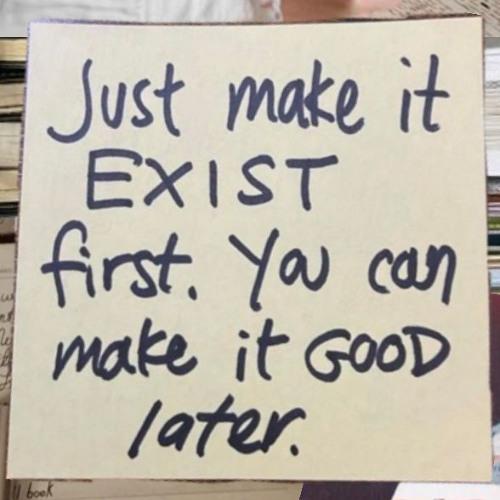 Just make it
EXIST
first. You can
make it GOOD
later.
book